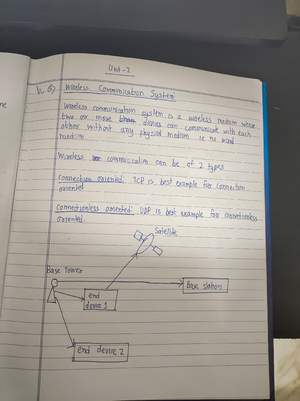 Unit-3
Wireless Communication System
Wireless communication system is a wireless medium where
two or more devices can communicate with each
other without any physical medium i.e no wired
medium
Wireless communication can be of 2 types
Connection oriented: TCP is best example for connection
oriented
Connectionless oriented: UDP is best example for connectionless
oriented
Satellite
Base Tower
Base station
end
device 1
end device 2